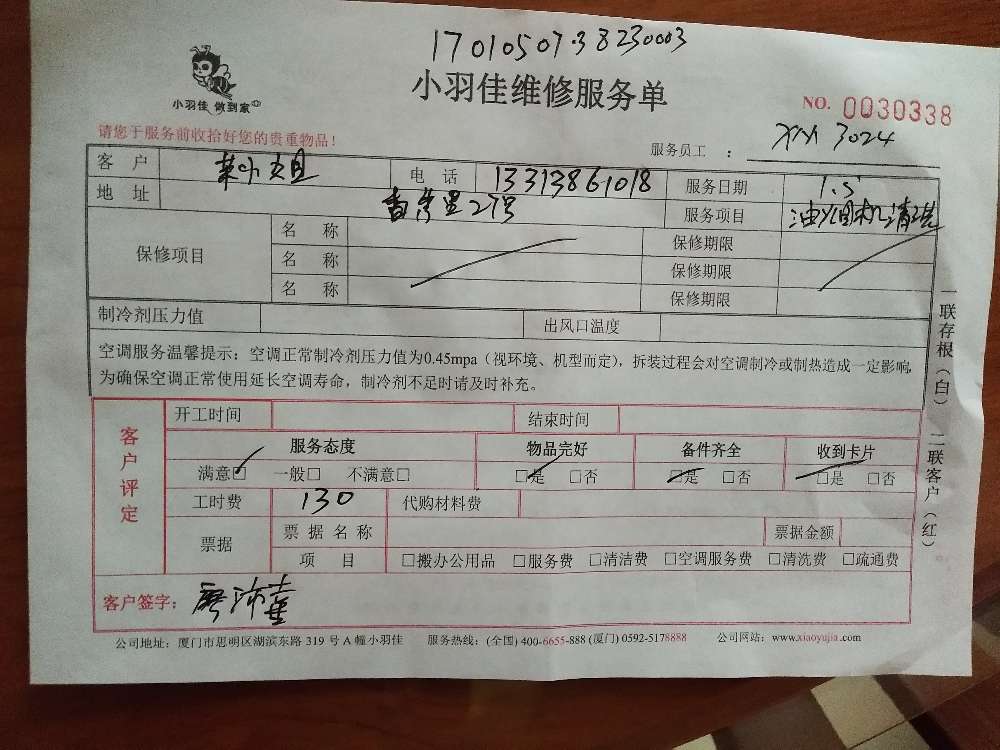 17010507.38230003
小羽佳 做到家
小羽佳维修服务单
NO. 0030338
请您于服务前收拾好您的贵重物品！
服务员工 ： XM 3024
客 户 电 话 13313861018 服务日期 1.5
地 址 27号 服务项目 油烟机清洗
保修项目 名 称 保修期限
名 称 保修期限
名 称 保修期限
制冷剂压力值 出风口温度
空调服务温馨提示：空调正常制冷剂压力值为0.45mpa（视环境、机型而定），拆装过程会对空调制冷或制热造成一定影响，
为确保空调正常使用延长空调寿命，制冷剂不足时请及时补充。
客户评定
开工时间 结束时间
服务态度 物品完好 备件齐全 收到卡片
满意☑ 一般□ 不满意□ □是 □否 □是 □否 □是 □否
工时费 130 代购材料费
票据 票据名称 票据金额
项 目 □搬办公用品 □服务费 □清洁费 □空调服务费 □清洗费 □疏通费
客户签字：
公司地址：厦门市思明区湖滨东路 319 号 A 幢小羽佳 服务热线：(全国) 400-6655-888 (厦门) 0592-5178888 公司网站：www.xiaoyujia.com
一联存根（白） 二联客户（红）